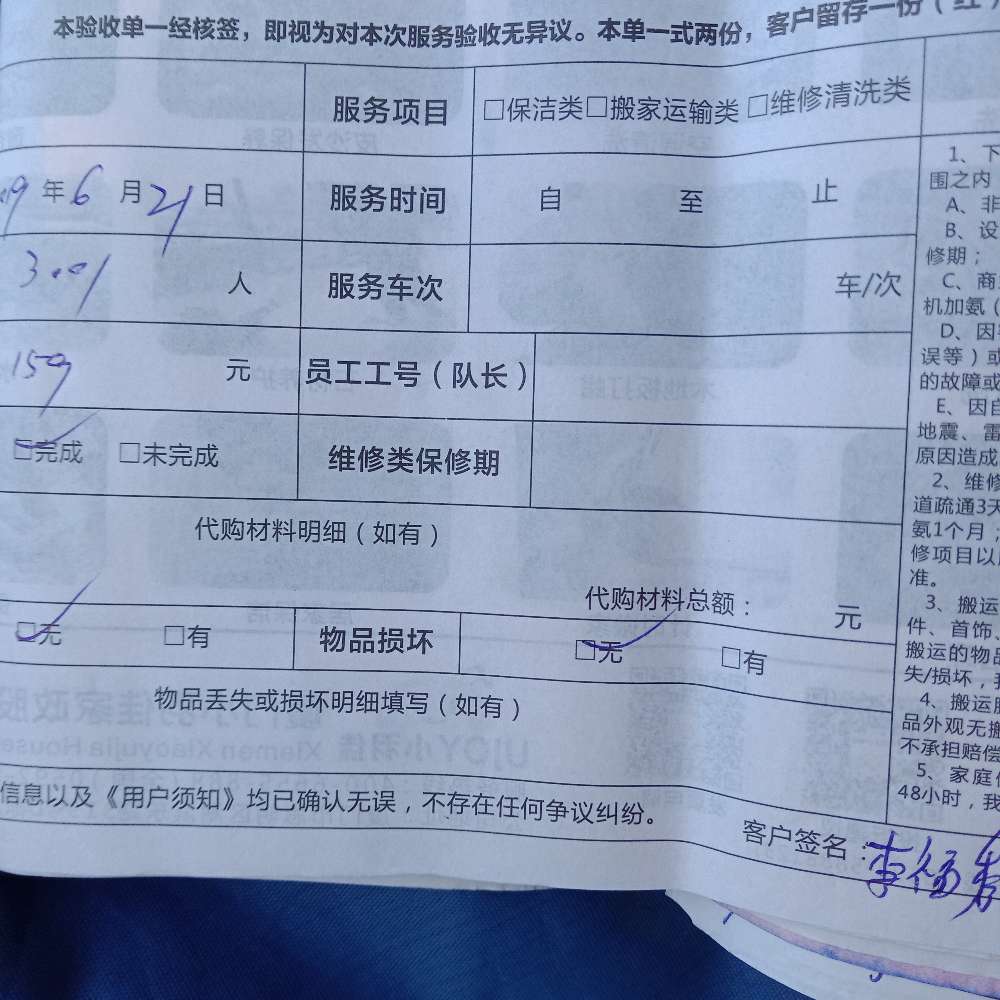 本验收单一经核签，即视为对本次服务验收无异议。本单一式两份，客户留存一份（红）
服务项目 □保洁类□搬家运输类 □维修清洗类
9 年 6 月 21 日 服务时间 自 至 止
人 服务车次 车/次
159 元 员工工号（队长）
□完成 □未完成 维修类保修期
代购材料明细（如有）
代购材料总额： 元
□无 □有 物品损坏 □无 □有
物品丢失或损坏明细填写（如有）
信息以及《用户须知》均已确认无误，不存在任何争议纠纷。
客户签名：李
1、下
围之内
A、非
B、设
修期；
C、商
机加氨（
D、因
误等）或
的故障或
E、因自
地震、雷
原因造成
2、维修
道疏通3天
氨1个月，
修项目以
准。
3、搬运
件、首饰、
搬运的物品
失/损坏，
4、搬运
品外观无搬
不承担赔偿
5、家庭
48小时，我